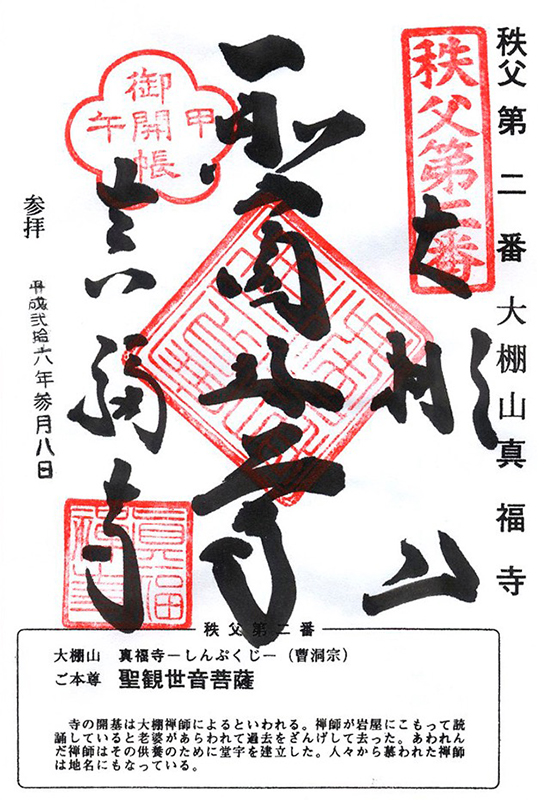 秩父第二番大棚山真福寺
秩父第二番
大棚山
御開帳
甲
午
真福寺
参拝
平成弐拾六年参月八日
眞福禅寺
秩父第二番
大棚山 真福寺―しんぷくじ―（曹洞宗）
ご本尊 聖観世音菩薩
寺の開基は大棚禅師によるといわれる。禅師が岩屋にこもって読
誦していると老婆があらわれて過去をざんげして去った。あわれん
だ禅師はその供養のために堂宇を建立した。人々から慕われた禅師
は地名にもなっている。